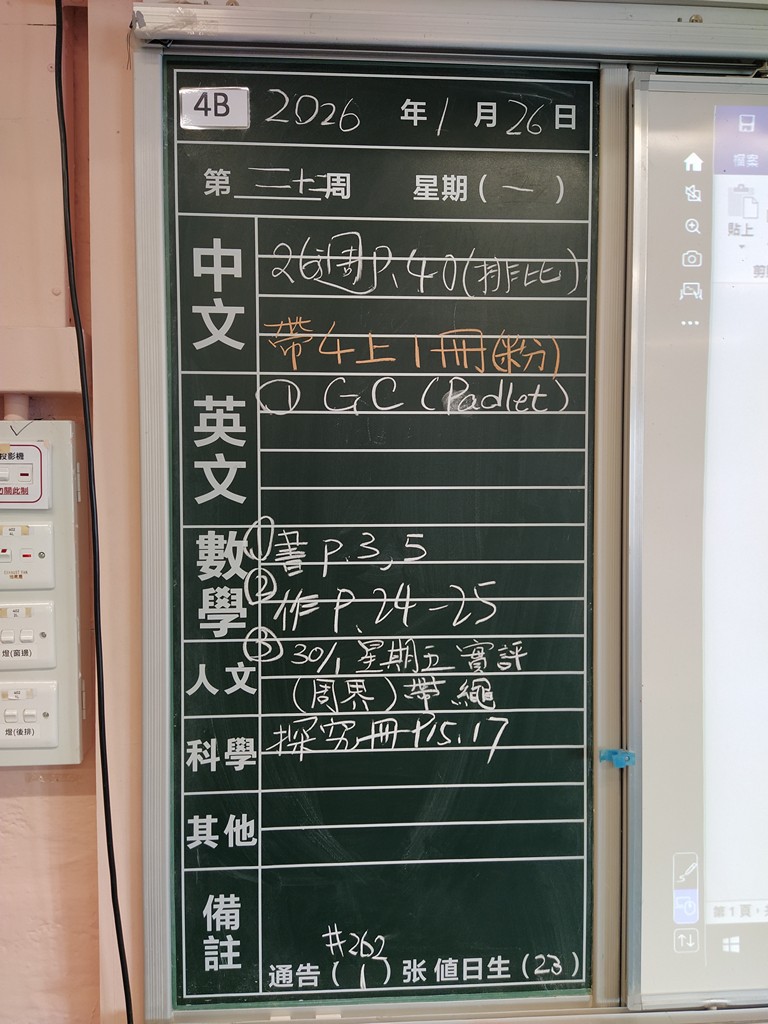 4B 2026 年 1 月 26 日
第 二十二 周 星期 ( 一 )
中文
26週 P.40 (排比)
帶 4上1冊 (粉)
英文
① GC (Padlet)
數學
① 書 P.3,5
② 作 P.24-25
③ 30/1 星期五 實評
(周界) 帶繩
人文
科學
探究冊 P15.17
其他
備註
#262
通告 ( 1 ) 张 值日生 ( 23 )
投影機
勿關此制
燈(窗邊)
燈(後排)
檔案
貼上
剪
第 1 頁，共